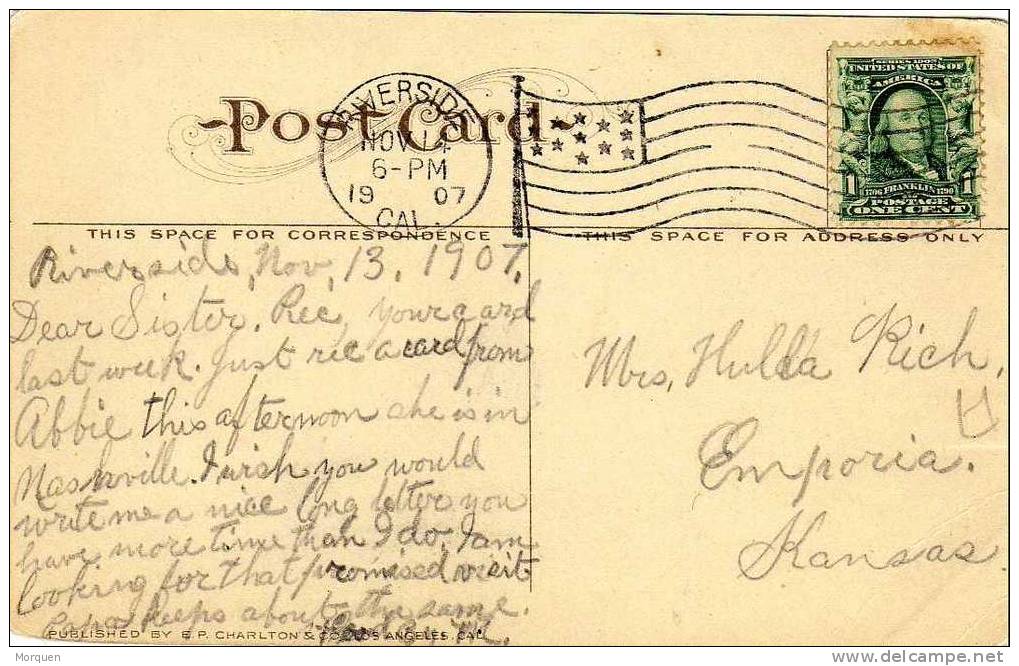 Post Card
RIVERSIDE
NOV 14
6-PM
19 07
CAL.
SERIES 1902
UNITED STATES OF
AMERICA
1 1706 FRANKLIN 1790 1
POSTAGE
ONE CENT
THIS SPACE FOR CORRESPONDENCE
THIS SPACE FOR ADDRESS ONLY
Riverside, Nov, 13, 1907,
Dear Sister, Rec, your card
last week. Just rec a card from
Abbie this afternoon she is in
Nashville. I wish you would
write me a nice long letter you
have more time than I do, I am
looking for that promised visit
Papa keeps about the same.
Mrs, Hulda Rich,
Emporia.
Kansas
PUBLISHED BY E. P. CHARLTON & CO. LOS ANGELES, CAL.
Morquen
delcampe.net